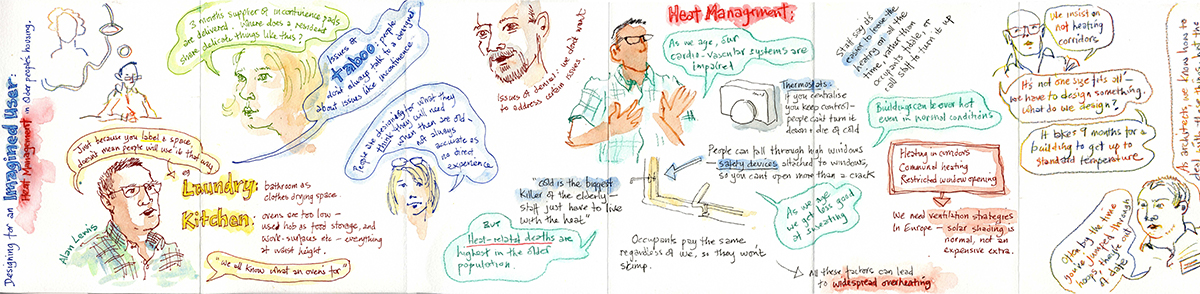 Designing for an Imagined User:
Heat Management in older people's housing.
Just because you label a space,
doesn't mean people will use it that way
Alan Lewis
3 months supplier of incontinence pads
are delivered. Where does a resident
store delicate things like this?
Laundry: bathroom as
clothes drying space.
Kitchen: ovens are too low –
used hob as food storage, and
work-surfaces etc – everything
at waist height.
"We all know what an oven's for"
Issues of
Taboo: people
don't always
talk to a designer
about issues like incontinence.
People are designing for what they
think they will need
when they are old –
not always
accurate as
no direct
experience
Issues of denial: we don't want
to address certain issues.
"Cold is the biggest
killer of the elderly –
staff just have to live
with the heat"
But
Heat-related deaths are
highest in the older
population.
Heat Management:
As we age, our
cardio vascular systems are
impaired
Thermostats:
If you centralise
you keep control –
people can't turn it
down & die of cold
People can fall through high windows
– safety devices attached to windows,
so you can't open more than a crack
As we age
we get less good
at sweating
Occupants pay the same
regardless of use, so they won't
skimp.
All these factors can lead
to widespread overheating
Staff say it's
easier to leave the
heating on all the
time, rather than
staff to turn it up
Buildings can be over hot
even in normal conditions
Heating in corridors
Communal heating
Restricted window opening
We need ventilation strategies
In Europe – solar shading is
normal, not an
expensive extra.
We insist on
not heating
corridors
It's not one size fits all –
we have to design something.
What do we design?
It takes 9 months for a
building to get up to
standard temperature
Often by the time
you've jumped through
hoops, they're out
of date
As architects we know how to